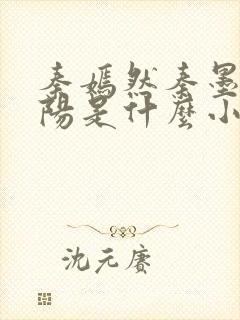 秦嫣然秦墨
阳是什麼小
沈元赛